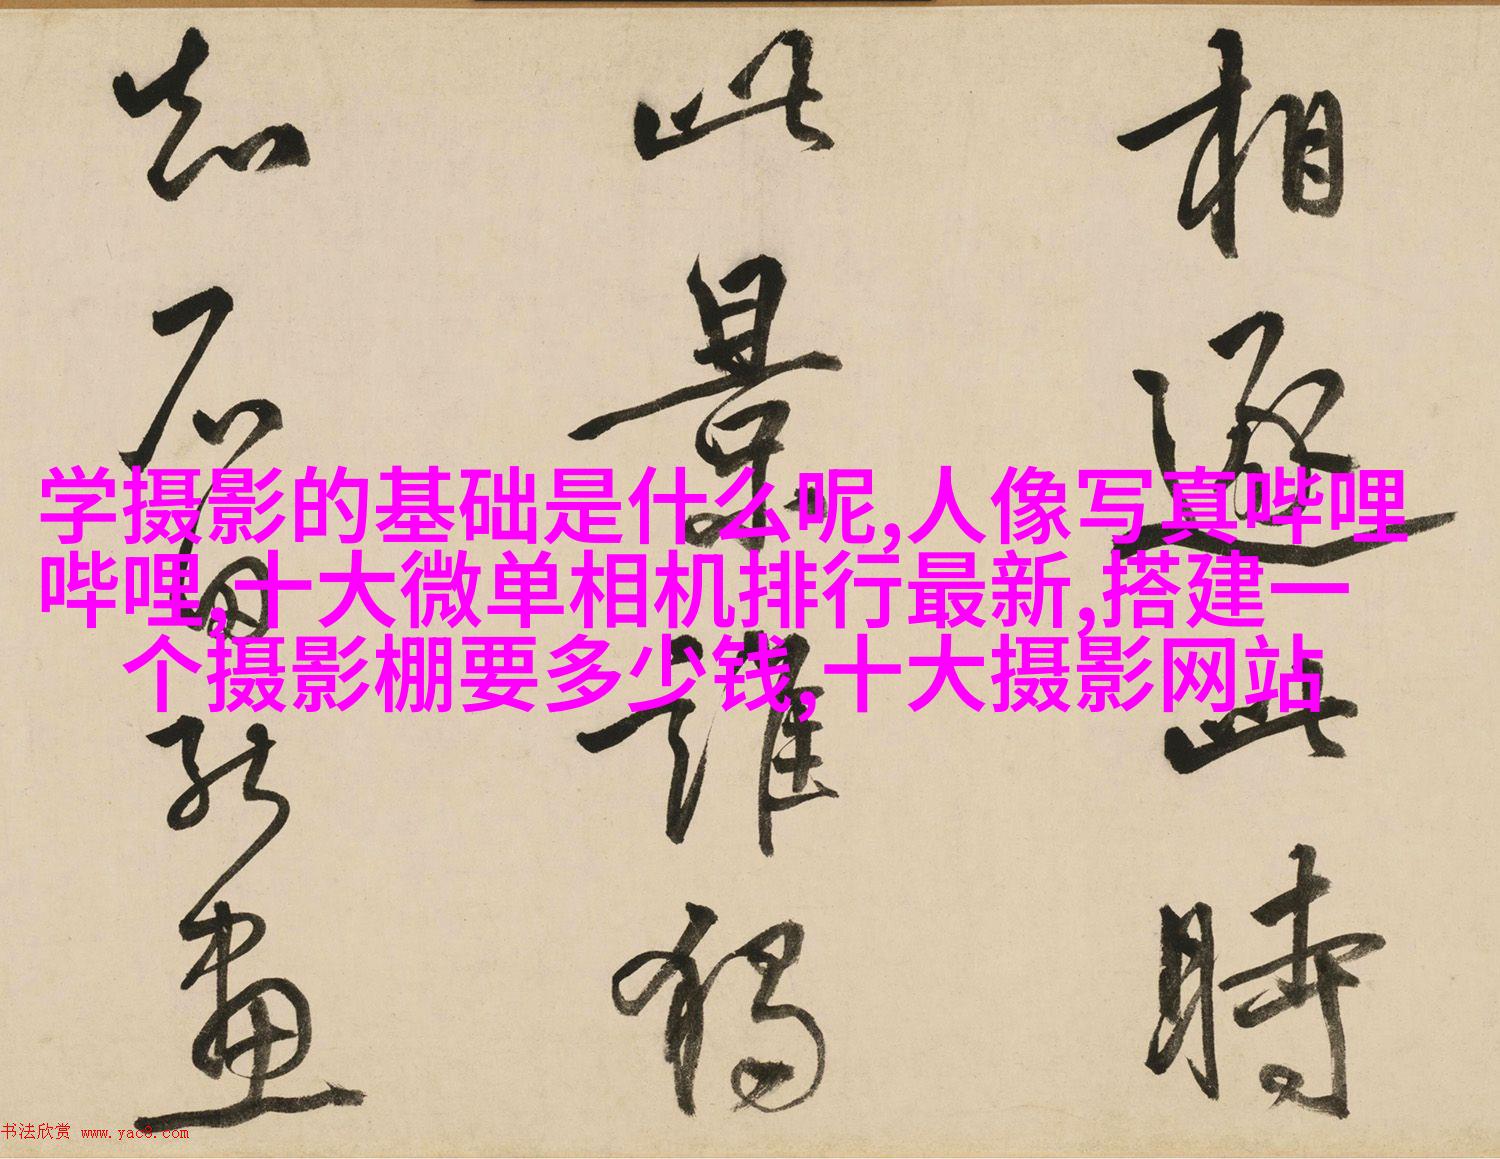 相逐此時
此景誰獨
知石田能畫
学摄影的基础是什么呢,人像写真哔哩
哔哩,十大微单相机排行最新,搭建一
个摄影棚要多少钱,十大摄影网站
书法欣赏 www.yac8.com